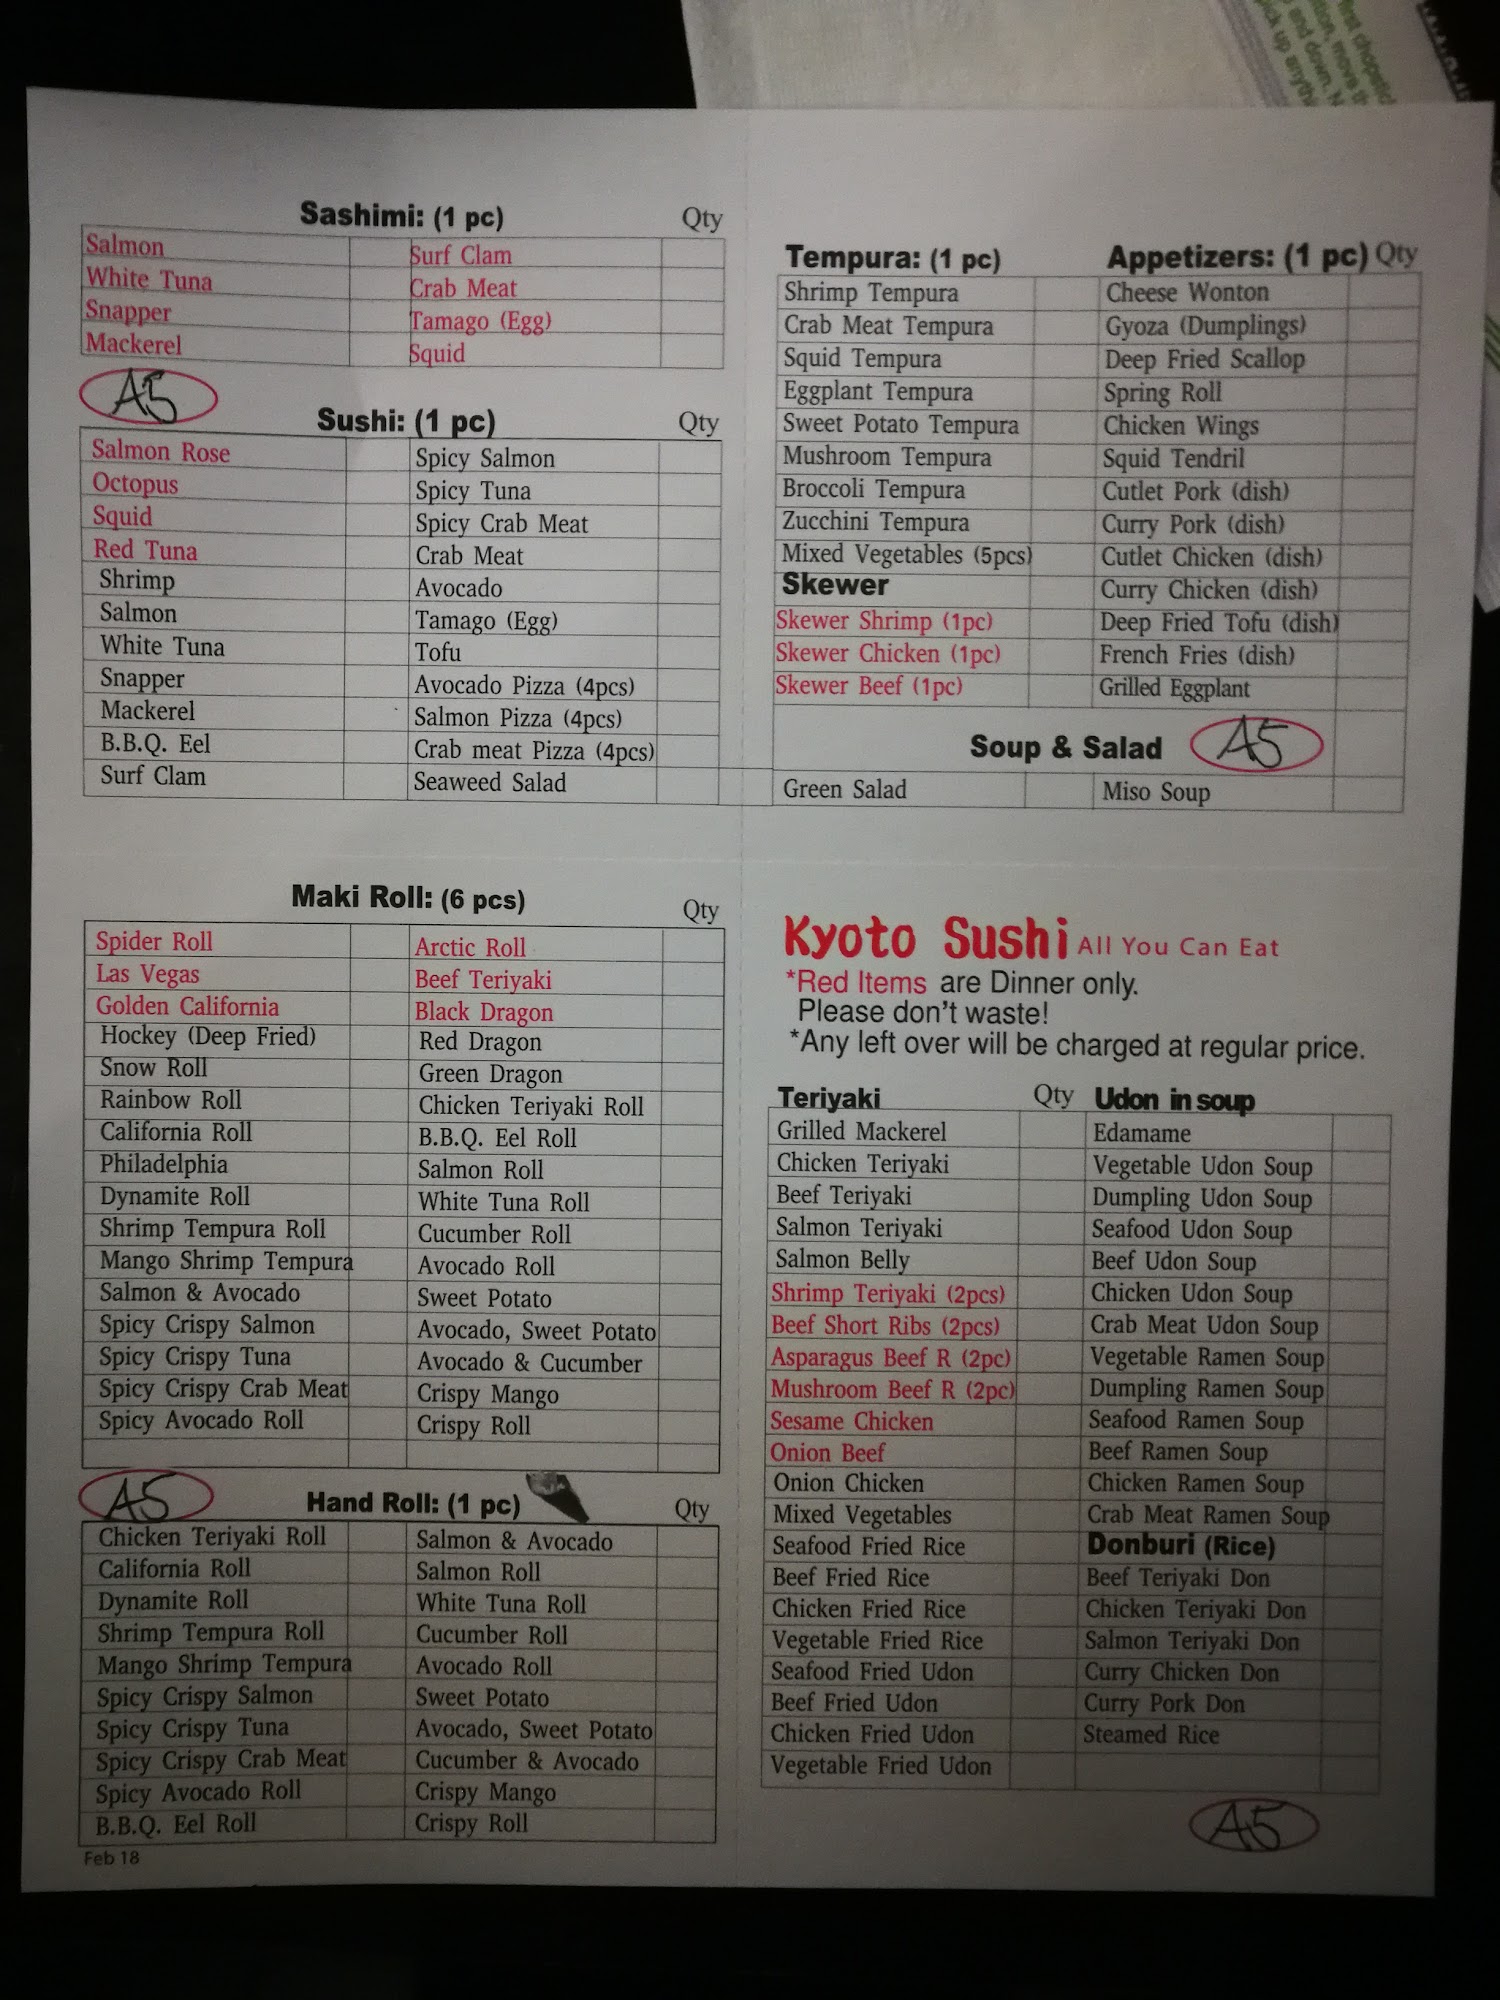 Sashimi: (1 pc) Qty
Salmon Surf Clam
White Tuna Crab Meat
Snapper Tamago (Egg)
Mackerel Squid
A5
Sushi: (1 pc) Qty
Salmon Rose Spicy Salmon
Octopus Spicy Tuna
Squid Spicy Crab Meat
Red Tuna Crab Meat
Shrimp Avocado
Salmon Tamago (Egg)
White Tuna Tofu
Snapper Avocado Pizza (4pcs)
Mackerel Salmon Pizza (4pcs)
B.B.Q. Eel Crab meat Pizza (4pcs)
Surf Clam Seaweed Salad
Tempura: (1 pc) Appetizers: (1 pc) Qty
Shrimp Tempura Cheese Wonton
Crab Meat Tempura Gyoza (Dumplings)
Squid Tempura Deep Fried Scallop
Eggplant Tempura Spring Roll
Sweet Potato Tempura Chicken Wings
Mushroom Tempura Squid Tendril
Broccoli Tempura Cutlet Pork (dish)
Zucchini Tempura Curry Pork (dish)
Mixed Vegetables (5pcs) Cutlet Chicken (dish)
Skewer Curry Chicken (dish)
Skewer Shrimp (1pc) Deep Fried Tofu (dish)
Skewer Chicken (1pc) French Fries (dish)
Skewer Beef (1pc) Grilled Eggplant
Soup & Salad A5
Green Salad Miso Soup
Maki Roll: (6 pcs) Qty
Spider Roll Arctic Roll
Las Vegas Beef Teriyaki
Golden California Black Dragon
Hockey (Deep Fried) Red Dragon
Snow Roll Green Dragon
Rainbow Roll Chicken Teriyaki Roll
California Roll B.B.Q. Eel Roll
Philadelphia Salmon Roll
Dynamite Roll White Tuna Roll
Shrimp Tempura Roll Cucumber Roll
Mango Shrimp Tempura Avocado Roll
Salmon & Avocado Sweet Potato
Spicy Crispy Salmon Avocado, Sweet Potato
Spicy Crispy Tuna Avocado & Cucumber
Spicy Crispy Crab Meat Crispy Mango
Spicy Avocado Roll Crispy Roll
A5 Hand Roll: (1 pc) Qty
Chicken Teriyaki Roll Salmon & Avocado
California Roll Salmon Roll
Dynamite Roll White Tuna Roll
Shrimp Tempura Roll Cucumber Roll
Mango Shrimp Tempura Avocado Roll
Spicy Crispy Salmon Sweet Potato
Spicy Crispy Tuna Avocado, Sweet Potato
Spicy Crispy Crab Meat Cucumber & Avocado
Spicy Avocado Roll Crispy Mango
B.B.Q. Eel Roll Crispy Roll
Feb 18
Kyoto Sushi All You Can Eat
*Red Items are Dinner only.
Please don't waste!
*Any left over will be charged at regular price.
Teriyaki Qty Udon in soup
Grilled Mackerel Edamame
Chicken Teriyaki Vegetable Udon Soup
Beef Teriyaki Dumpling Udon Soup
Salmon Teriyaki Seafood Udon Soup
Salmon Belly Beef Udon Soup
Shrimp Teriyaki (2pcs) Chicken Udon Soup
Beef Short Ribs (2pcs) Crab Meat Udon Soup
Asparagus Beef R (2pc) Vegetable Ramen Soup
Mushroom Beef R (2pc) Dumpling Ramen Soup
Sesame Chicken Seafood Ramen Soup
Onion Beef Beef Ramen Soup
Onion Chicken Chicken Ramen Soup
Mixed Vegetables Crab Meat Ramen Soup
Seafood Fried Rice Donburi (Rice)
Beef Fried Rice Beef Teriyaki Don
Chicken Fried Rice Chicken Teriyaki Don
Vegetable Fried Rice Salmon Teriyaki Don
Seafood Fried Udon Curry Chicken Don
Beef Fried Udon Curry Pork Don
Chicken Fried Udon Steamed Rice
Vegetable Fried Udon
A5